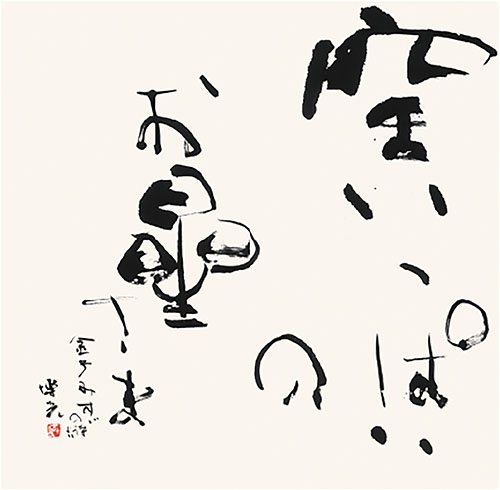 空いっぱい
の
お星
さま
金子みすゞの詩